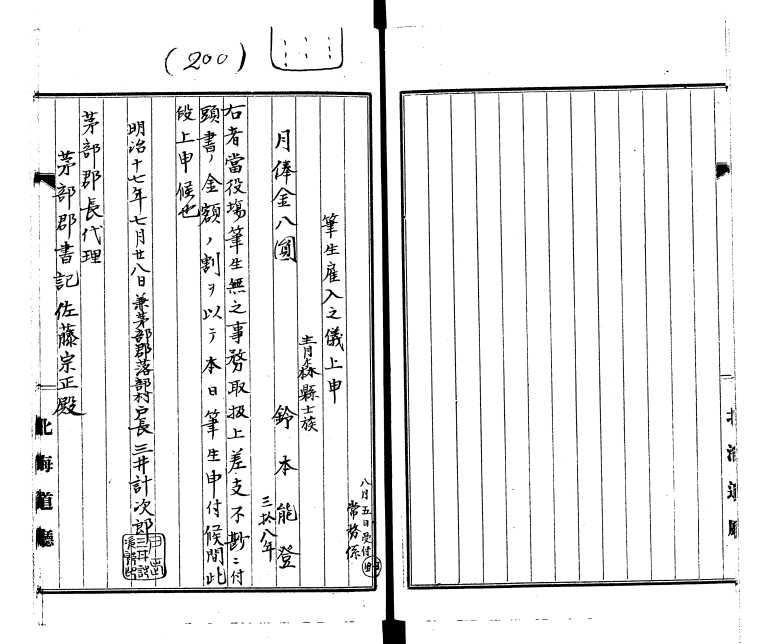 (200)
筆生雇入之儀上申
青森縣士族
月俸金八圓 鈴木能登
三拾八年
右者當役塲筆生無之事務取扱上差支不尠ニ付
頭書ノ金額ノ割ヲ以テ本日筆生申付候間此
段上申候也
明治十七年七月廿八日 兼茅部郡落部村戸長 三井計次郎
茅部郡長代理
茅部郡書記 佐藤宗正殿
八月五日受付
常務係
北海道廳